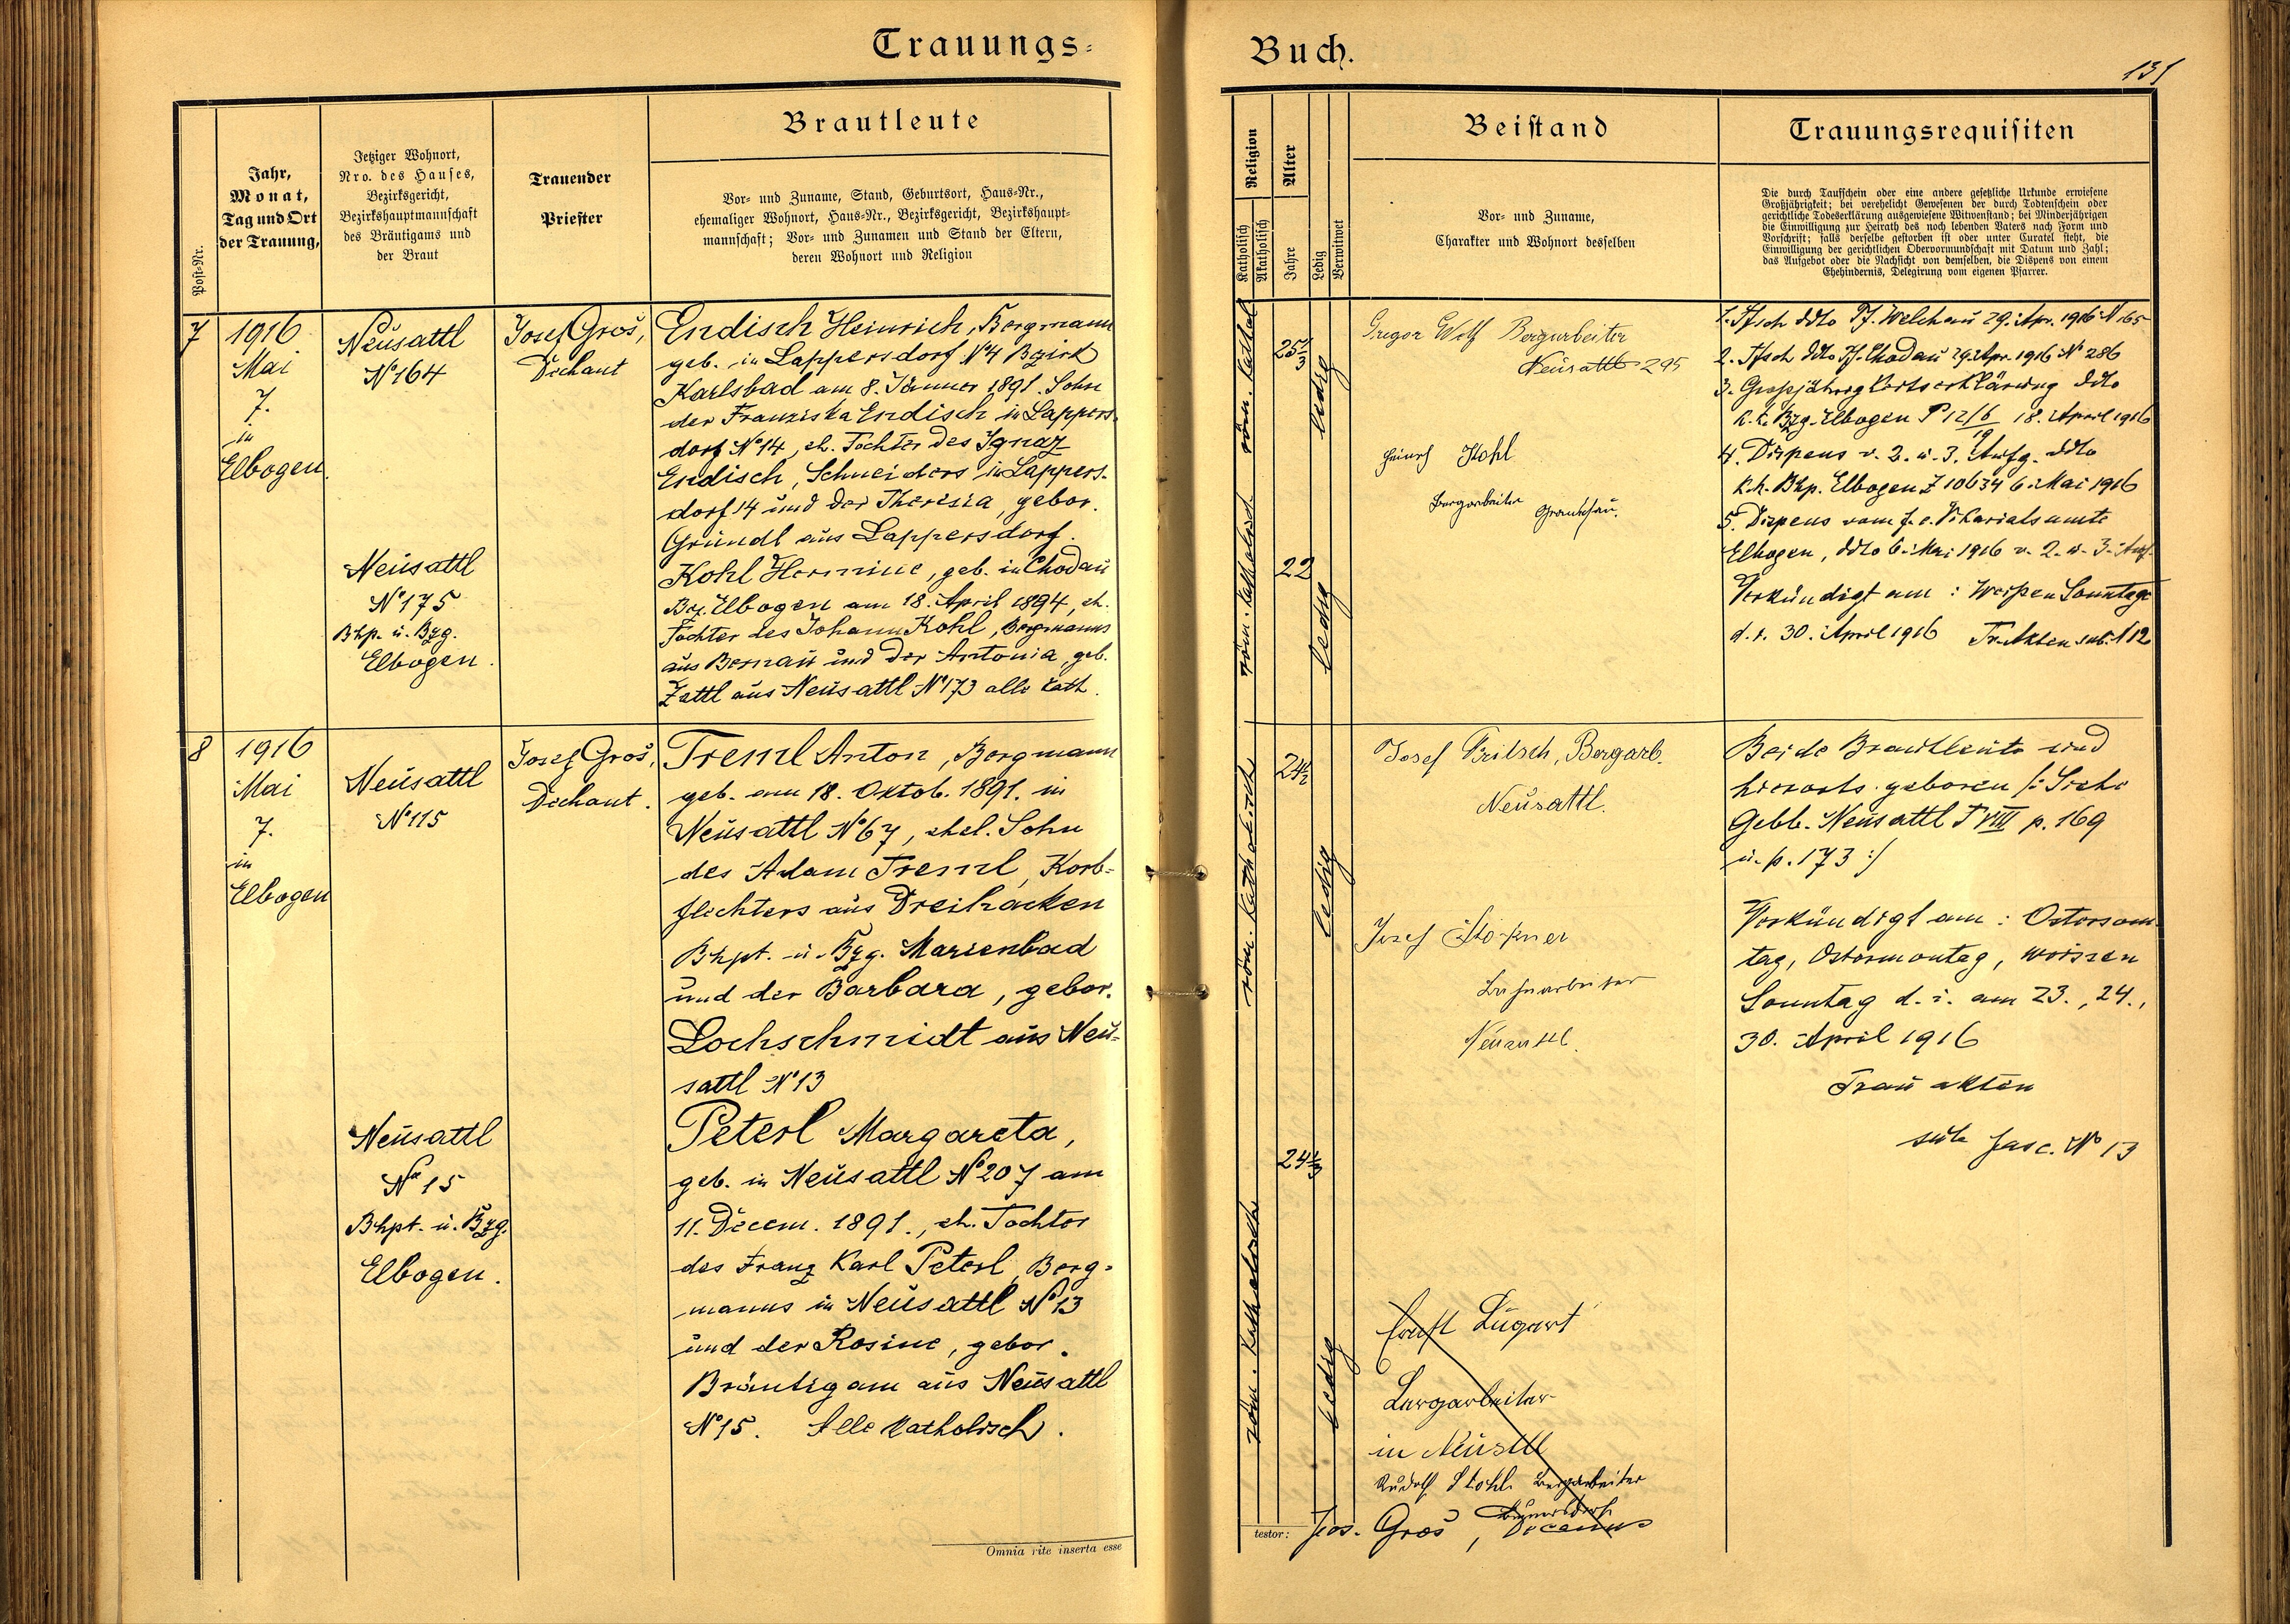 Trauungs=
Buch.
131
Post-Nr.
Jahr,
Monat,
Tag und Ort
der Trauung,
Jetziger Wohnort,
Nro. des Hauses,
Bezirksgericht,
Bezirkshauptmannschaft
des Bräutigams und
der Braut
Trauender
Priester
Brautleute
Vor- und Zuname, Stand, Geburtsort, Haus-Nr.,
ehemaliger Wohnort, Haus-Nr., Bezirksgericht, Bezirkshaupt-
mannschaft; Vor- und Zunamen und Stand der Eltern,
deren Wohnort und Religion
Religion
Katholisch
Akatholisch
Alter
Jahre
Ledig
Verwitwet
Beistand
Vor- und Zuname,
Charakter und Wohnort desselben
Trauungsrequisiten
Die durch Taufschein oder eine andere gesetzliche Urkunde erwiesene
Großjährigkeit; bei verehelicht Gewesenen der durch Todtenschein oder
gerichtliche Todeserklärung ausgewiesene Witwenstand; bei Minderjährigen
die Einwilligung zur Heirath des noch lebenden Vaters nach Form und
Vorschrift; falls derselbe gestorben ist oder unter Curatel steht, die
Einwilligung der gerichtlichen Obervormundschaft mit Datum und Zahl;
das Aufgebot oder die Nachsicht von demselben, die Dispens von einem
Ehehindernis, Delegirung vom eigenen Pfarrer.
7
1916
Mai
7.
in
Elbogen.
Neusattl
Nº 164
Josef Groš,
Dechant
Endisch Heinrich, Bergmann
geb. in Lappersdorf Nº 4 Bezirk
Karlsbad am 8. Jänner 1891. Sohn
der Franziska Endisch in Lappers-
dorf Nº 14, eh. Tochter des Ignaz
Endisch, Schneiders in Lappers-
dorf 14 und der Theresia, gebor.
Gründl aus Lappersdorf.
Neusattl
Nº 175
Bhp. u. Bzg.
Elbogen.
Kohl Hermine, geb. in Chodau
Bez. Elbogen am 18. April 1894, eh.
Tochter des Johann Kohl, Bergmanns
aus Bernau und der Antonia, geb.
Zettl aus Neusattl Nº 173 alle kath.
röm. kathol.
25 1/3
ledig
röm. katholisch
22
ledig
Gregor Wolf Bergarbeiter
Neusattl 295
Heinrich Kohl
Bergarbeiter
1. Tfsch ddto Pf. Welchau 29. Apr. 1916 N 165
2. Tfsch ddto Pf. Chodau 29. Apr. 1916 Nº 286
3. Grossjährigkeitserklärung ddto
k.k. Bzg. Elbogen P 12/6 18. April 1916
19
4. Dispens v. 2. u. 3. Aufg. ddto
k.k. Bhp. Elbogen Z 10634 6. Mai 1916
5. Dispens vom f. e. Vikariatsamte
Elbogen, ddto 6. Mai 1916 v. 2. u. 3. Aufg.
Verkündigt am: Weissen Sonntage
d. i. 30. April 1916 Tr. Akten sub. N 12
8
1916
Mai
7.
in
Elbogen
Neusattl
Nº 115
Josef Groš,
Dechant.
Treml Anton, Bergmann
geb. am 18. Oktob. 1891. in
Neusattl Nº 67, ehel. Sohn
des Adam Treml, Korb=
flechters aus Dreihacken
Bhpt. u. Bzg. Marienbad
und der Barbara, gebor.
Lochschmidt aus Neu-
sattl Nº 13
Neusattl
Nº 15
Bhpt. u. Bzg.
Elbogen.
Peterl Margareta,
geb. in Neusattl Nº 207 am
11. Decem. 1891., eh. Tochter
des Franz Karl Peterl, Berg=
manns in Neusattl Nº 13
und der Rosine, gebor.
Bräutigam aus Neusattl
Nº 15. Alle katholisch.
röm. katholisch
24 1/2
ledig
röm. katholisch
24 1/3
ledig
Josef Fritsch, Bergarb.
Neusattl.
Josef
Neusattl.
Ernst Lugert
Bergarbeiter
in Neusttl
Rudolf Bergarbeiter
Beide Brautleute sind
hierorts geboren /: Siehe
Gebb. Neusattl T VIII p. 169
u. p. 173 :/
Verkündigt am: Ostersonn-
tag, Ostermontag, weissen
Sonntag d. i. am 23., 24.,
30. April 1916
Trauakten
sub fasc. Nº 13
Omnia rite inserta esse
testor: Jos. Groš, Decanus